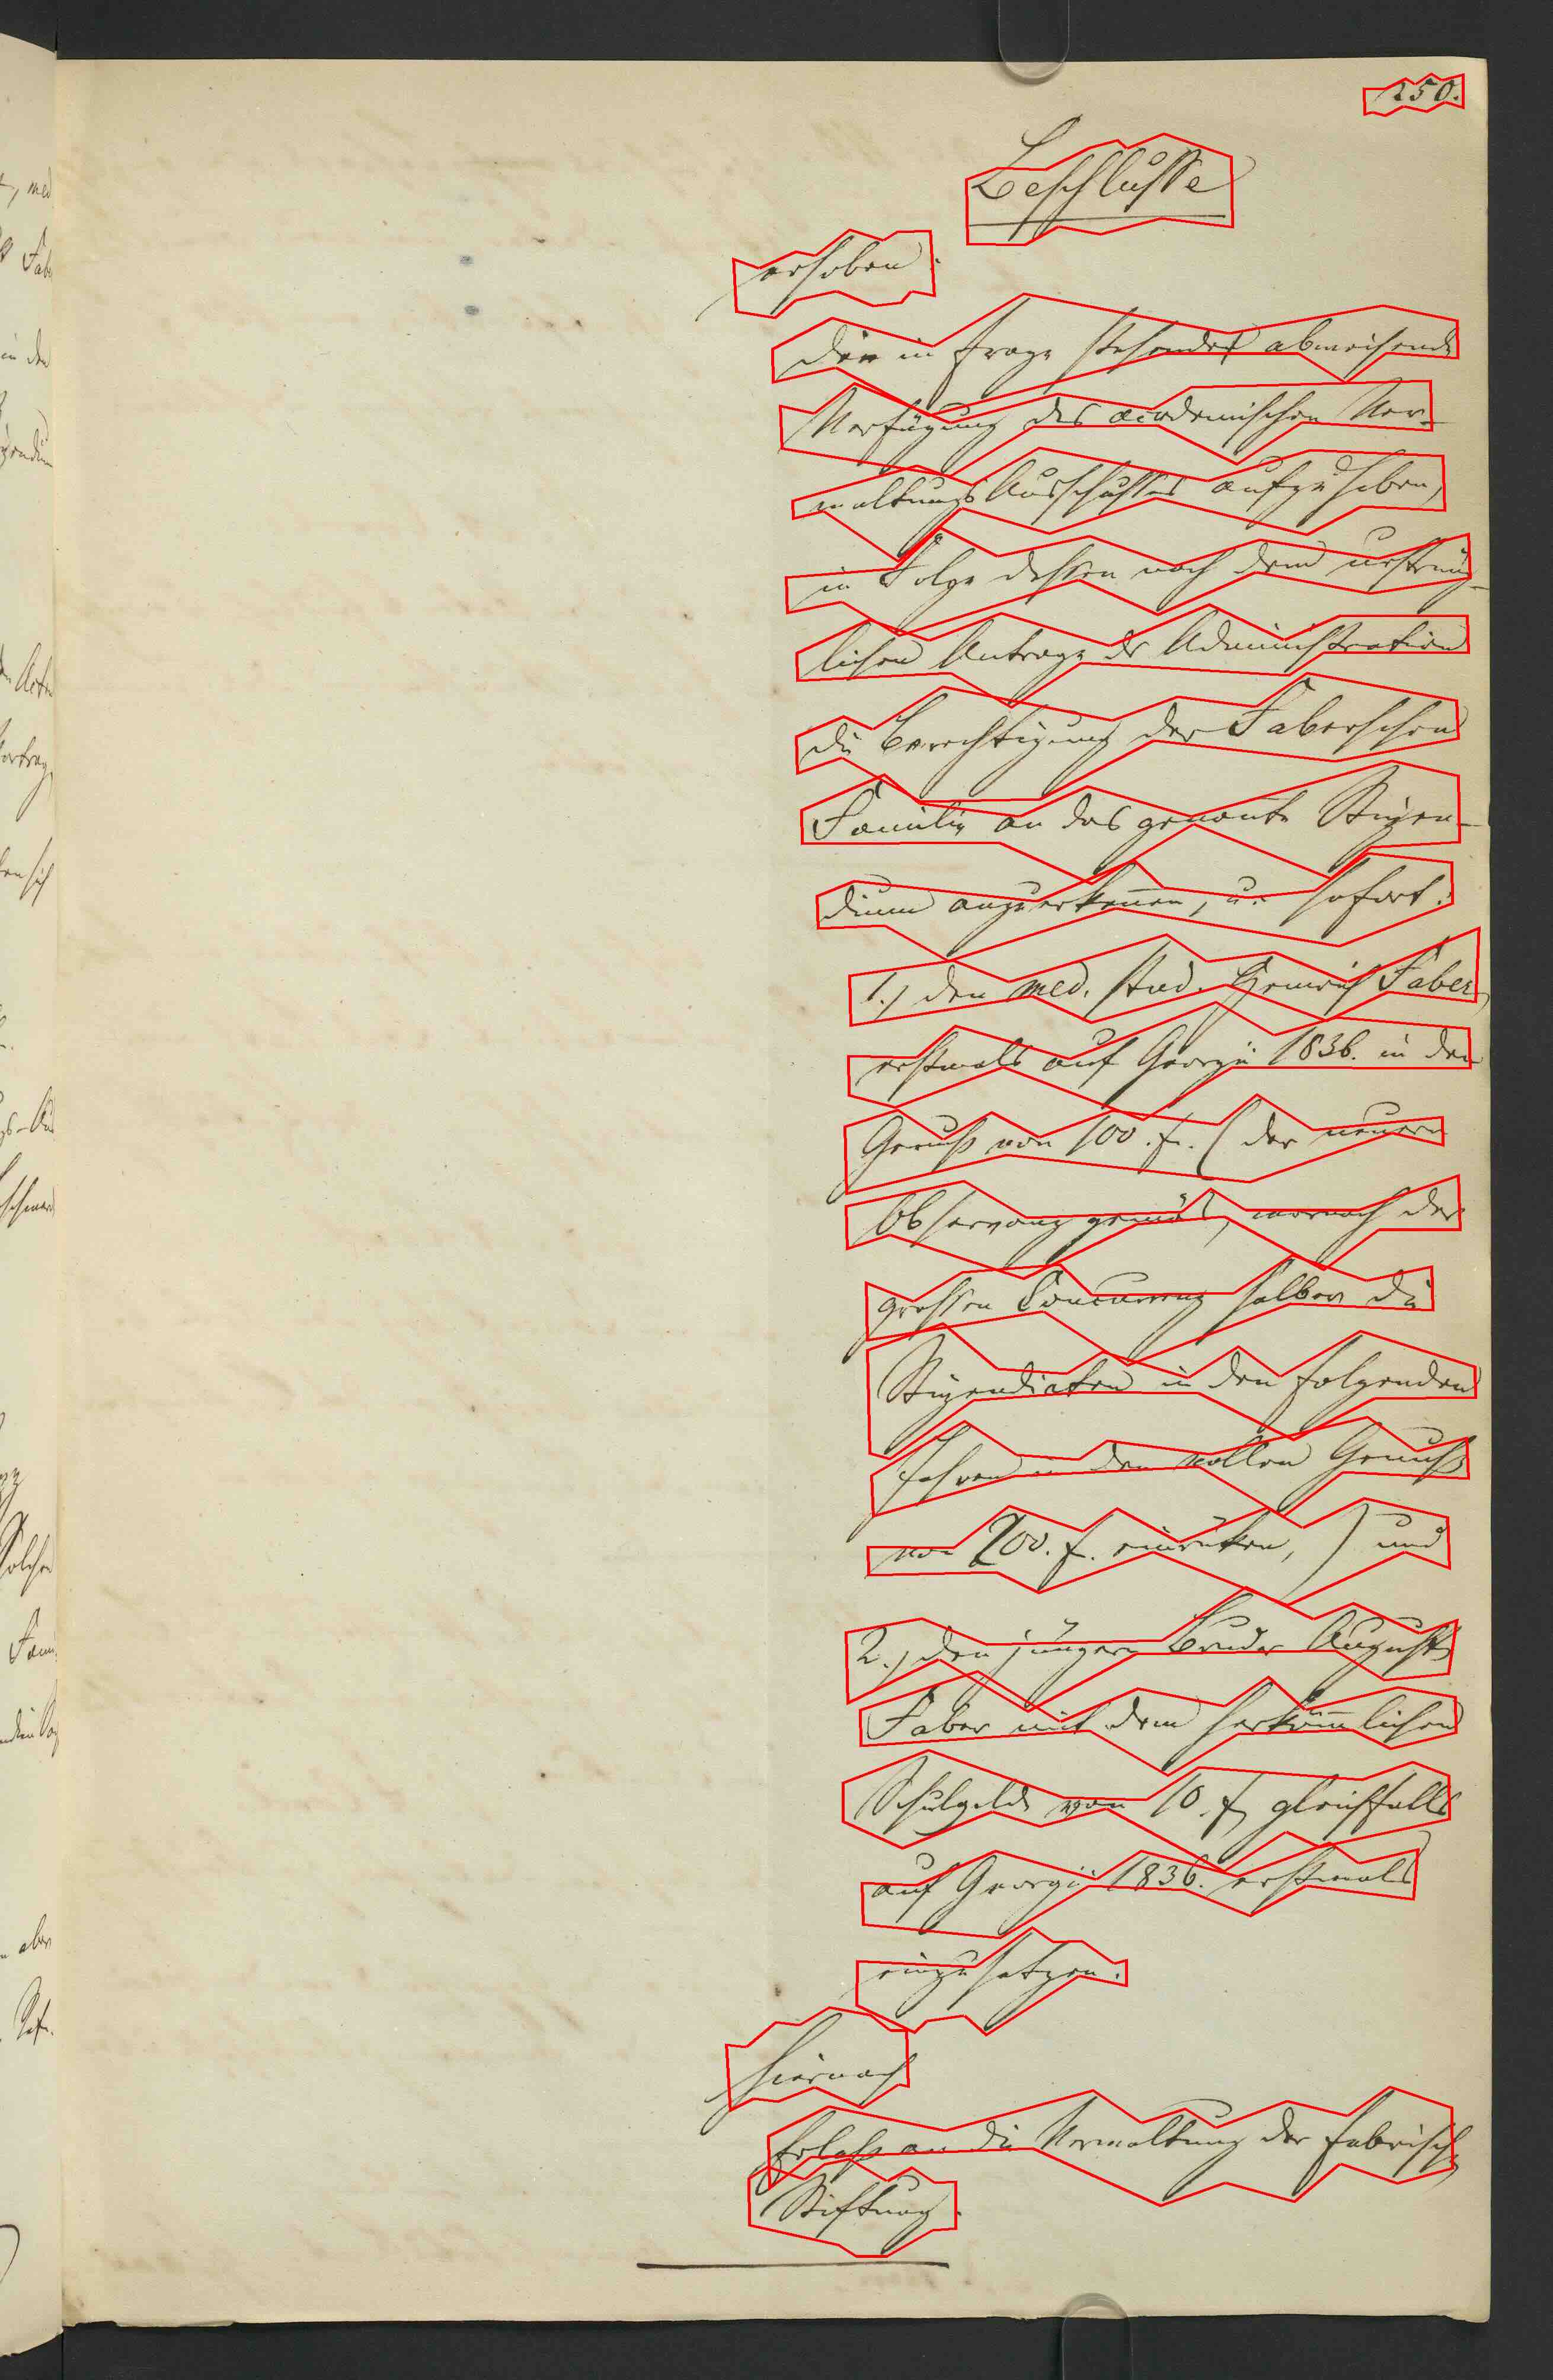 250.
Beschlusse
erhoben.
die in Frage stehende abweisende
Verfügung des academischen Ver-
waltungs Ausschusses aufzuheben,
in Folge dessen nach dem ursprüng-
lichen Antrage der Administration
die Berechtigung der Faberschen
Familie an das genante Stipen-
dium anzuerkennen, u. sofort:
1.) den med. stud. Heinrich Faber,
erstmals auf Georgii 1836. in den
Genuß von 100. f. (der neuern
Observanz gemäß, wornach der
grossen Concurrenz halber die
Stipendiaten in den folgenden
Jahren in den vollen Genuß
von 200. f. einrüken,) und
2.) den jüngern Bruder August
Faber mit dem herkömlichen
Schulgelde von 10. f. gleichfalls
auf Georgii 1836. erstmals
einzusetzen.
hiernach
Erlaß an die Verwaltung der Fabrisch
Stiftung.